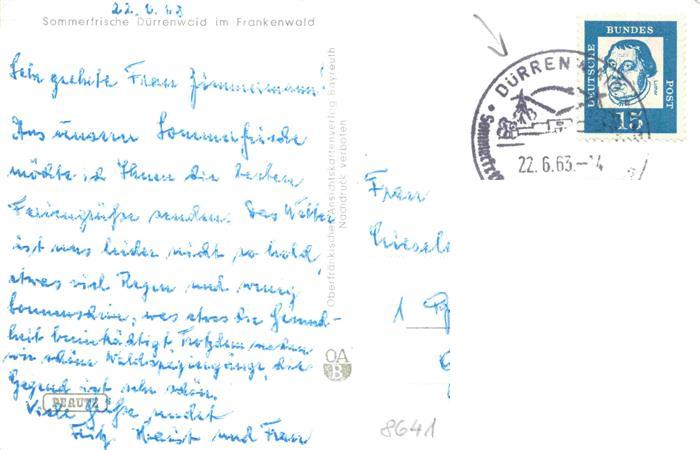 22.6.63
Sommerfrische Dürrenwaid im Frankenwald
Sehr geehrte Frau Zimmermann!
Aus unserer Sommerfrische
möchte ich Ihnen die besten
Feriengrüße senden. Das Wetter
ist uns leider nicht so hold,
etwas viel Regen und wenig
Sonnenschein, was etwas die Gesund-
heit beeinträchtigt. Trotzdem machen
wir schöne Waldspaziergänge, die
Gegend ist sehr schön.
Viele Grüße sendet
Fritz und Frau
PEAUTZ
Oberfränkischer Ansichtskartenverlag Bayreuth
Nachdruck verboten
OA
B
DÜRRENWAID
Sommerfr
22.6.63.-14
DEUTSCHE
BUNDES
POST
15
Frau
1
8641